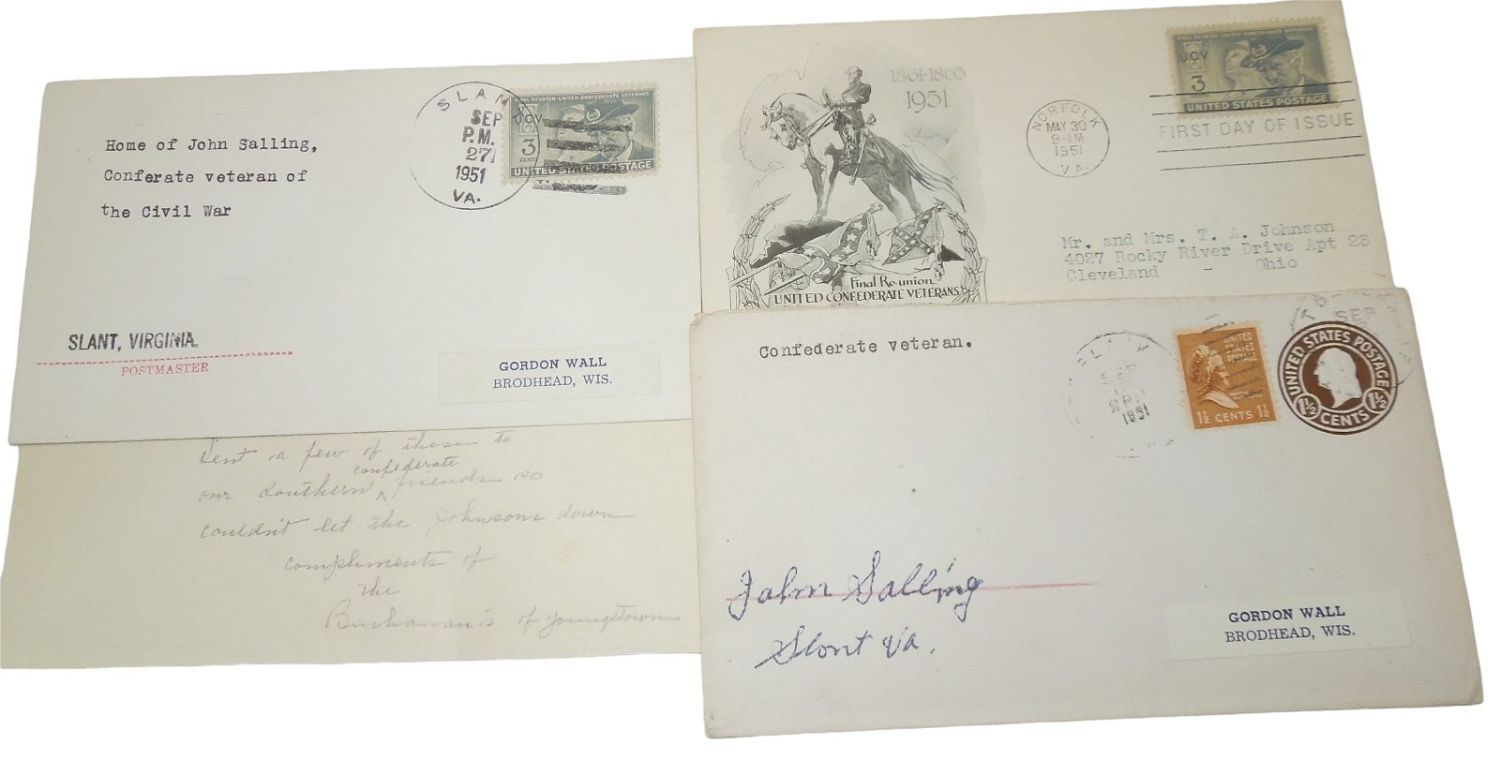 Home of John Salling,
Conferate veteran of
the Civil War
SLANT
SEP
P.M.
27
1951
VA.
FINAL REUNION UNITED CONFEDERATE VETERANS
UCV
3
CENTS
UNITED STATES POSTAGE
SLANT, VIRGINIA.
POSTMASTER
GORDON WALL
BRODHEAD, WIS.
1861-1865
1951
Final Re-union
UNITED CONFEDERATE VETERANS
NORFOLK
MAY 30
9-AM
1951
VA.
UCV
3
UNITED STATES POSTAGE
FIRST DAY OF ISSUE
Mr. and Mrs. T. A. Johnson
4027 Rocky River Drive Apt 23
Cleveland - Ohio
Sent a few of these to
confederate
our Southern ^ friends so
couldn't let the Johnsons down
compliments of
the
Buchanan's of Youngstown
Confederate veteran.
SEP
1951
UNITED
STATES
POSTAGE
1½ CENTS 1½
SEP
UNITED STATES POSTAGE
1½ CENTS 1½
John Salling
Slant Va.
GORDON WALL
BRODHEAD, WIS.